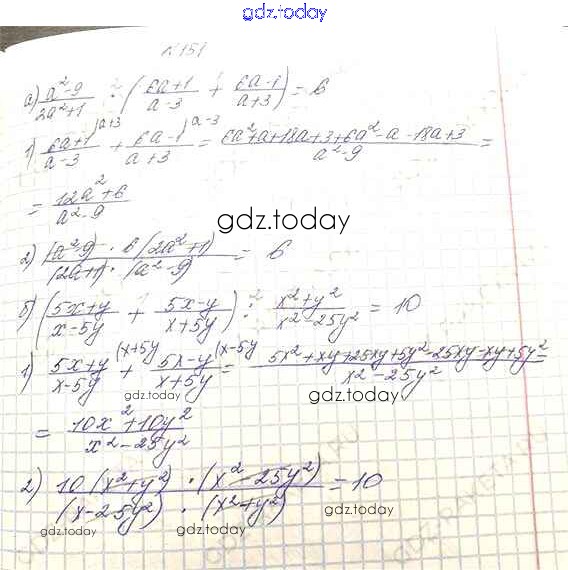 gdz.today
№ 151
а) (a²-9)/(2a²+1) : ((6a+1)/(a-3) + (6a-1)/(a+3)) = 6
1) (6a+1)/(a-3) |a+3 + (6a-1)/(a+3) |a-3 = (6a²+a+18a+3+6a²-a-18a+3)/(a²-9) =
= (12a²+6)/(a²-9)
gdz.today
2) ((a²-9) · 6(2a²+1))/((2a+1) · (a²-9)) = 6
б) ((5x+y)/(x-5y) + (5x-y)/(x+5y)) : (x²+y²)/(x²-25y²) = 10
1) (5x+y)/(x-5y) (x+5y + (5x-y)/(x+5y) (x-5y = (5x²+xy+25xy+5y²-25xy-xy+5y²)/(x²-25y²) =
gdz.today gdz.today
= (10x²+10y²)/(x²-25y²)
2) (10(x²+y²) · (x²-25y²))/((x-25y²) · (x²+y²)) = 10
gdz.today gdz.today